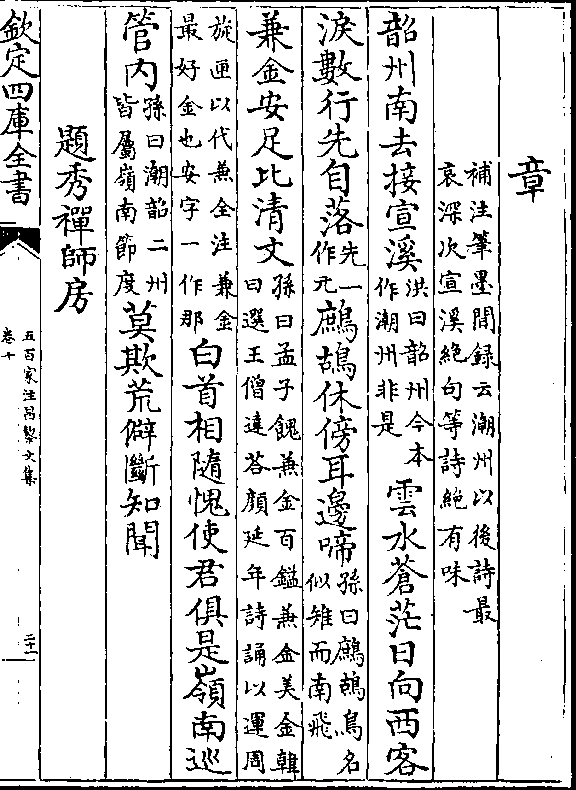 章
補注筆墨間録云潮州以後詩最
哀深次宣溪絶句等詩絶有味
韶州南去接宣溪
洪曰韶州今本
作潮州非是
雲水蒼茫日向西客
淚數行先自落
先一
作元
鷓鴣休傍耳邊啼
孫曰鷓鴣鳥名
似雉而南飛
兼金安足比清文
孫曰孟子餽兼金百鎰兼金美金韓
曰選王僧達荅顔延年詩誦以運周
旋匣以代兼金注兼金
最好金也安字一作那
白首相隨愧使君俱是嶺南巡
管内
孫曰潮韶二州
皆屬嶺南節度
莫欺荒僻斷知聞
題秀禪師房
欽定四庫全書
五百家注昌黎文集
卷十
二十一